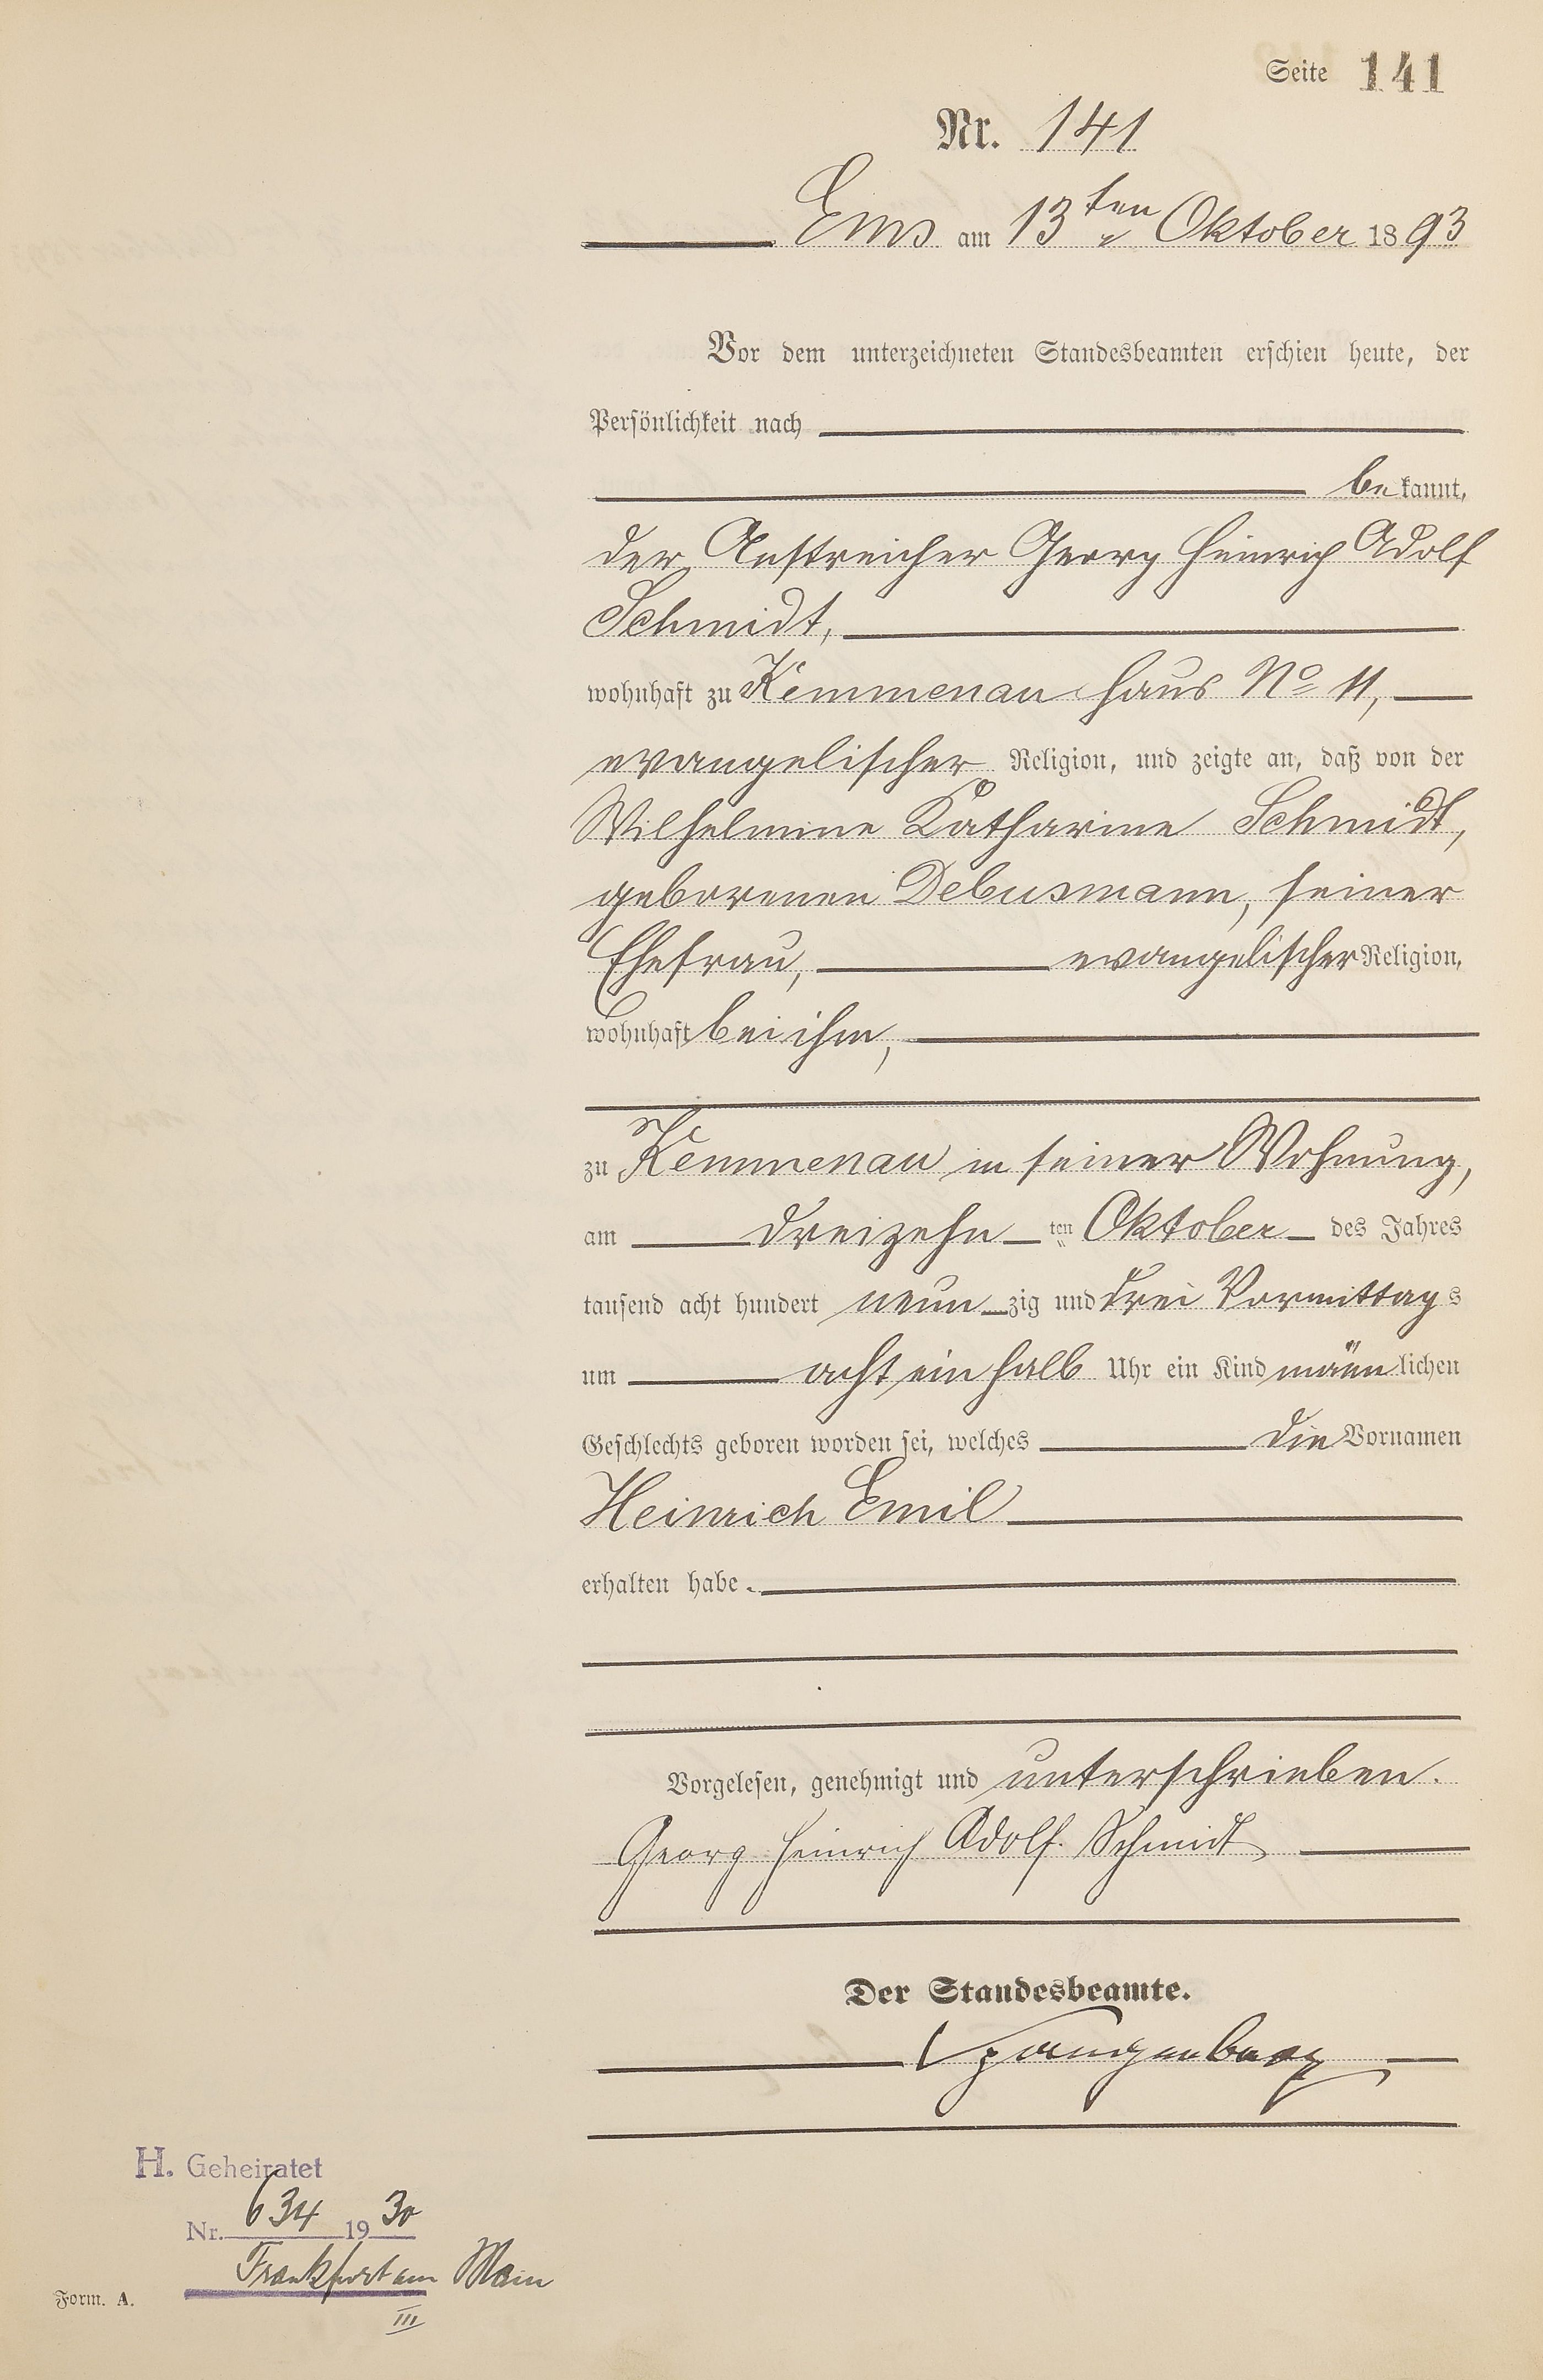 Seite 141
Nr. 141
Ems am 13ten Oktober 1893
Vor dem unterzeichneten Standesbeamten erschien heute, der
Persönlichkeit nach
bekannt,
der Anstreicher Georg Heinrich Adolf
Schmidt,
wohnhaft zu Kemmenau Haus No 11,
evangelischer Religion, und zeigte an, daß von der
Wilhelmine Katharine Schmidt,
geborenen Debusmann, seiner
Ehefrau, evangelischer Religion,
wohnhaft bei ihm,
zu Kemmenau in seiner Wohnung,
am dreizehnten Oktober des Jahres
tausend acht hundert neunzig und drei Vormittags
um acht ein halb Uhr ein Kind männlichen
Geschlechts geboren worden sei, welches die Vornamen
Heinrich Emil
erhalten habe.
Vorgelesen, genehmigt und unterschrieben.
Georg Heinrich Adolf Schmidt
Der Standesbeamte.
Spangenberg
H. Geheiratet
Nr. 634 1930
Frankfurt am Main
III
Form. A.